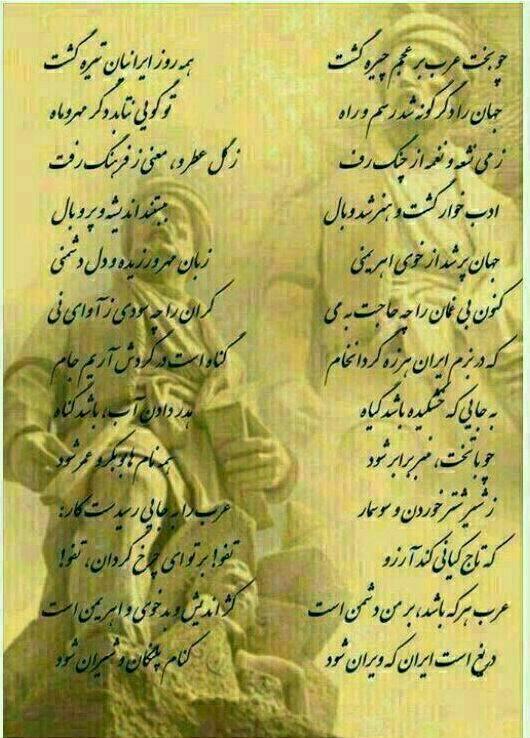 چو بخت عرب بر عجم چیره گشت همه روز ایرانیان تیره گشت
جهان را دگرگونه شد رسم و راه تو گویی نتابد دگر مهر و ماه
ز می نشعه و نغمه از چنگ رفت ز گل عطر و، معنی ز فرهنگ رفت
ادب خوار گشت و هنر شد وبال ببستند اندیشه و پر و بال
جهان پر شد از خوی اهریمنی زبان مهر ورزیده و دل دشمنی
کنون بی غمان را چه حاجت به می کران را چه سودی ز آوای نی
که در بزم ایران هرزه گرد انخام گناه است در گردش آریم جام
به جایی که خشکیده باشد گیاه هدر دادن آب، باشد گناه
چو با تخت، منبر برابر شود همه نام ها بوبکر و عمر شود
ز شیر شتر خوردن و سوسمار عرب را به جایی رسیدست کار:
که تاج کیانی کند آرزو تفو! بر تو ای چرخ گردان، تفو!
عرب هر که باشد، بر من دشمن است کژ اندیش و بد خوی و اهریمن است
دریغ است ایران که ویران شود کنام پلنگان و شیران شود